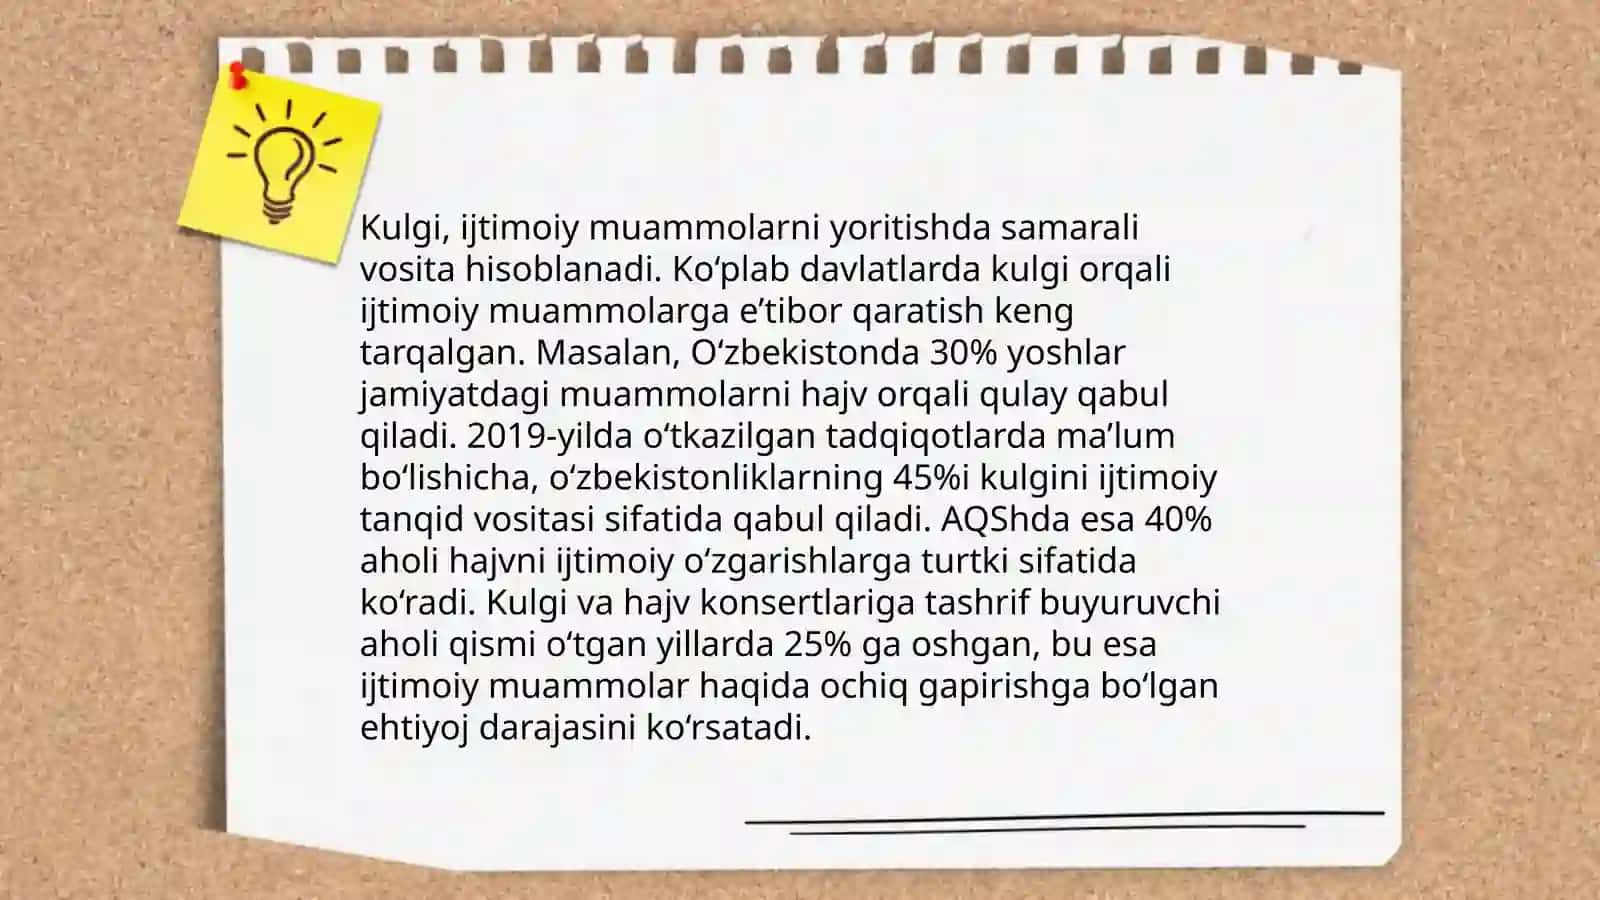 Kulgi, ijtimoiy muammolarni yoritishda samarali
vosita hisoblanadi. Ko‘plab davlatlarda kulgi orqali
ijtimoiy muammolarga e’tibor qaratish keng
tarqalgan. Masalan, O‘zbekistonda 30% yoshlar
jamiyatdagi muammolarni hajv orqali qulay qabul
qiladi. 2019-yilda o‘tkazilgan tadqiqotlarda ma’lum
bo‘lishicha, o‘zbekistonliklarning 45%i kulgini ijtimoiy
tanqid vositasi sifatida qabul qiladi. AQShda esa 40%
aholi hajvni ijtimoiy o‘zgarishlarga turtki sifatida
ko‘radi. Kulgi va hajv konsertlariga tashrif buyuruvchi
aholi qismi o‘tgan yillarda 25% ga oshgan, bu esa
ijtimoiy muammolar haqida ochiq gapirishga bo‘lgan
ehtiyoj darajasini ko‘rsatadi.